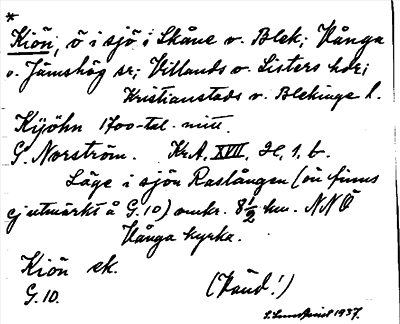 *
Kiön, ö i sjö i Skåne o. Blek.; Vånga
o. Jämshög sr; Villands o. Listers hdr;
Kristianstads o. Blekinge l.
Kijöhn 1700-tal. mitt.
G. Norström. KrA, XVII, H, 1, b.
Läge i sjön Raslången (ön finns
ej utmärkt å G.10) omkr. 8½ km. NNÖ
Vånga kyrka.
Kiön ek.
G.10. (Vänd!)
1937.